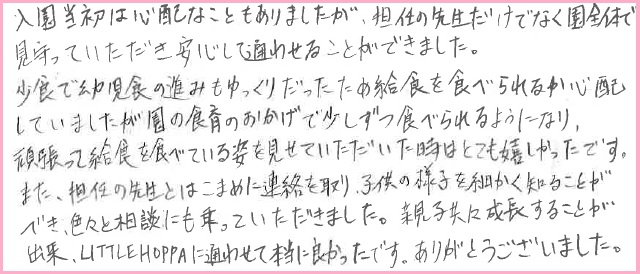 入園当初は心配なこともありましたが、担任の先生だけでなく園全体で
見守っていただき安心して通わせることができました。
少食で幼児食の進みもゆっくりだったため給食を食べられるか心配
していましたが園の食育のおかげで少しずつ食べられるようになり、
頑張って給食を食べている姿を見せていただいた時はとても嬉しかったです。
また、担任の先生とはこまめに連絡を取り、子供の様子を細かく知ることが
でき、色々と相談にも乗っていただきました。親子共々成長することが
出来、LITTLEHOPPAに通わせて本当に良かったです。ありがとうございました。